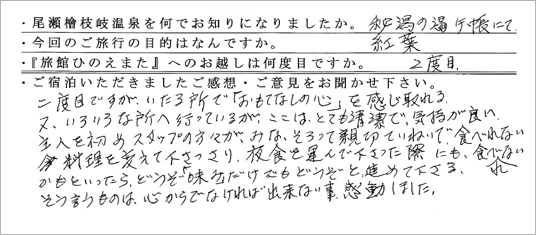 ・尾瀬檜枝岐温泉を何でお知りになりましたか。 秘湯の温泉手帳にて
・今回のご旅行の目的はなんですか。 紅葉
・『旅館ひのえまた』へのお越しは何度目ですか。 2度目
・ご宿泊いただきましたご感想・ご意見をお聞かせ下さい。
二度目ですが、いたる所で「おもてなしの心」を感じ取れる。
又、いろいろな所へ行っているが、ここは、とても清潔で、気持が良い。
主人を初めスタッフの方々が、みな、そろって親切ていねいで、食べれない
料理を変えて下さったり、夜食を運んで下さった際にも、食べれない
かもといったら、どうぞ「味みだけでもどうぞ」と、進めて下さる、
そう言うものは、心からでなければ出来ない事、感動しました。